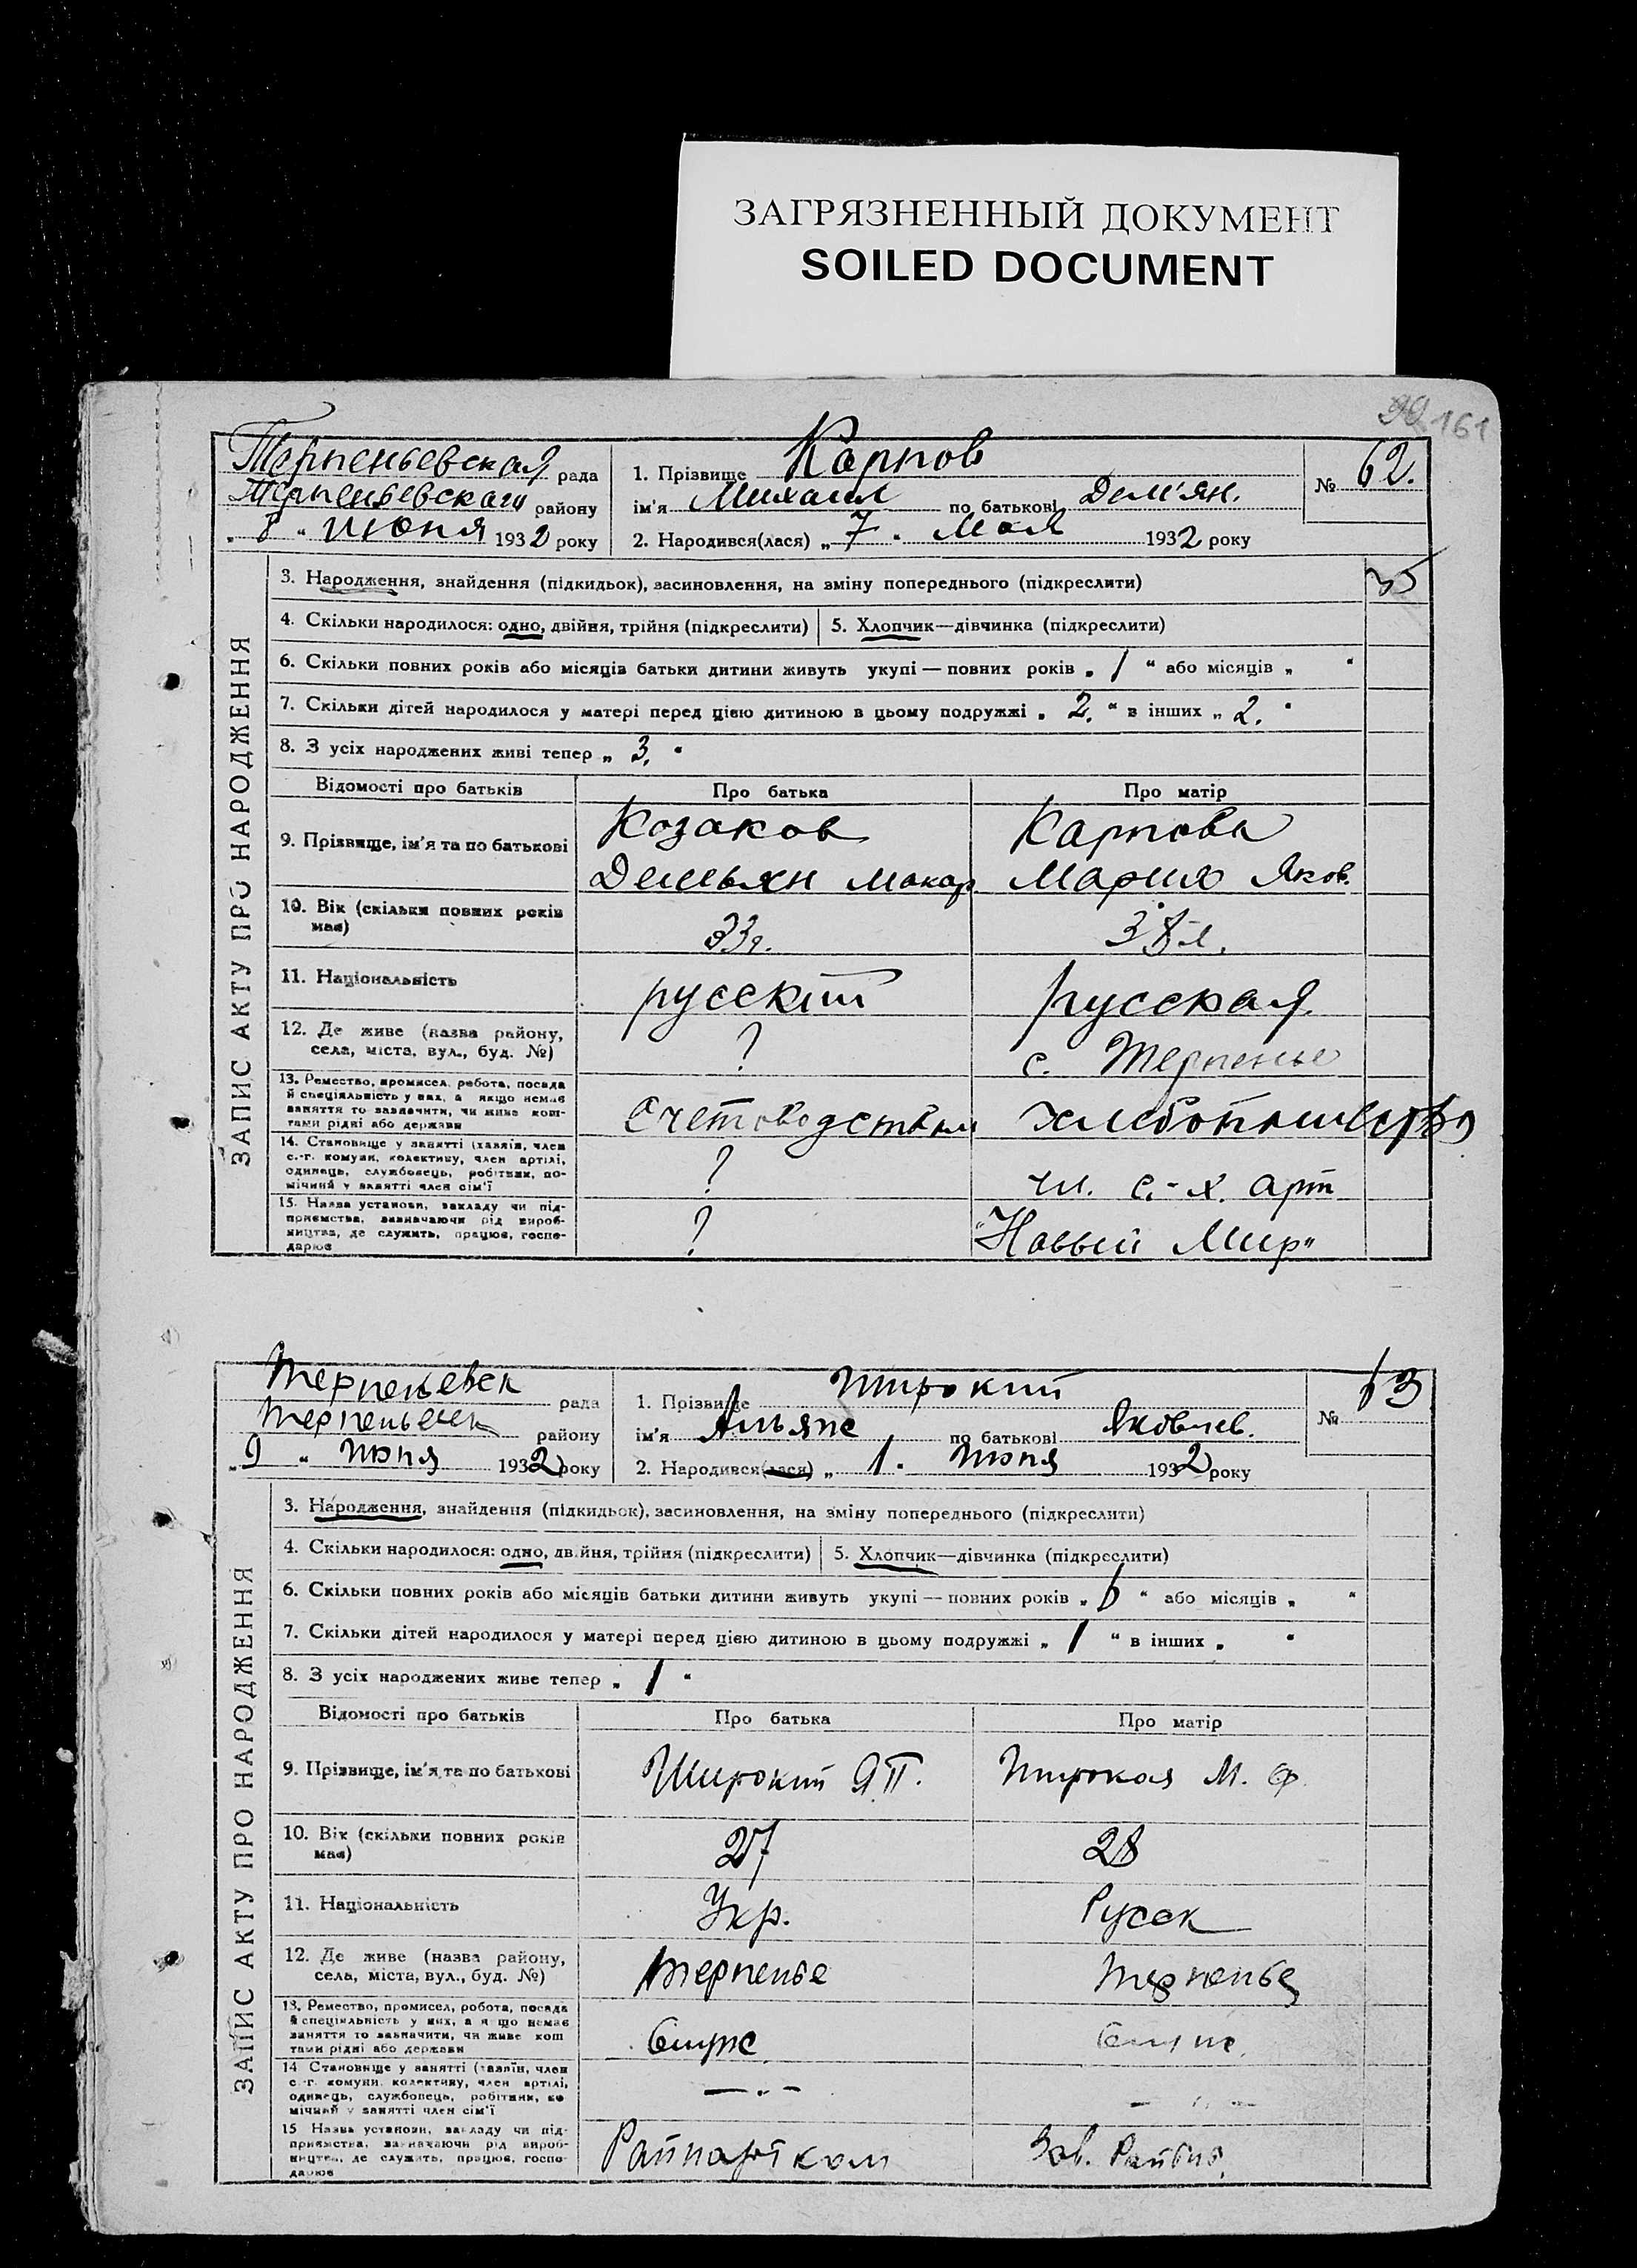 ЗАГРЯЗНЕННЫЙ ДОКУМЕНТ
SOILED DOCUMENT
161
Терпеньевская рада
Терпеньевскаго району
„ 8 “ июня 1932 року
1. Прізвище Карпов
ім'я Михаил по батькові Дем'ян.
2. Народився(лася) „ 7 “ Мая 1932 року
№ 62.
ЗАПИС АКТУ ПРО НАРОДЖЕННЯ
3. Народження, знайдення (підкидьок), засиновлення, на зміну попереднього (підкреслити)
4. Скільки народилося: одно, двійня, трійня (підкреслити) 5. Хлопчик—дівчинка (підкреслити)
6. Скільки повних років або місяців батьки дитини живуть укупі — повних років „ 1 “ або місяців „ “
7. Скільки дітей народилося у матері перед цією дитиною в цьому подружжі „ 2. “ в інших „ 2. “
8. З усіх народжених живі тепер „ 3. “
Відомості про батьків Про батька Про матір
9. Прізвище, ім'я та по батькові Козаков Карпова
Демьян Макар. Мария Яков.
10. Вік (скільки повних років має) 33г. 38 л.
11. Національність русский русская
12. Де живе (назва району, ? с. Терпенье
села, міста, вул., буд. №)
13. Ремество, промисел, робота, посада
й спеціяльність у них, а якщо немає
заняття то зазначити, чи живе кош-
тами рідні або держави
Счетоводством хлебопашество
14. Становище у занятті (хазяїн, член
с.-г. комуни, колективу, член артілі,
одинець, службовець, робітник, по-
мічний у занятті член сім'ї
? чл. с.-х. арт
15. Назва установи, закладу чи під-
приємства, зазначаючи рід вироб-
ництва, де служить, працює, госпо-
дарює
? "Новый Мир"
Терпеньевск рада
Терпеньевск району
„ 9 “ июня 1932 року
1. Прізвище Широкий
ім'я по батькові Яковлев.
2. Народився(лася) „ 1 “ июня 1932 року
№ 63
ЗАПИС АКТУ ПРО НАРОДЖЕННЯ
3. Народження, знайдення (підкидьок), засиновлення, на зміну попереднього (підкреслити)
4. Скільки народилося: одно, двійня, трійня (підкреслити) 5. Хлопчик—дівчинка (підкреслити)
6. Скільки повних років або місяців батьки дитини живуть укупі — повних років „ “ або місяців „ “
7. Скільки дітей народилося у матері перед цією дитиною в цьому подружжі „ 1 “ в інших „ “
8. З усіх народжених живе тепер „ 1 “
Відомості про батьків Про батька Про матір
9. Прізвище, ім'я та по батькові Широкий Я.П. Широкая М. Ф.
10. Вік (скільки повних років має) 27 28
11. Національність Укр. Русск
12. Де живе (назва району, Терпенье Терпенье
села, міста, вул., буд. №)
13. Ремество, промисел, робота, посада
й спеціяльність у них, а якщо немає
заняття то зазначити, чи живе кош
тами рідні або держави
Служ. Служ.
14 Становище у занятті (хазяїн, член
с.-г. комуни, колективу, член артілі,
одинець, службовець, робітник, по
мічний у занятті член сім'ї
— . —
15 Назва установи, закладу чи під-
приємства, зазначаючи рід вироб-
ництва, де служить, працює, госпо-
дарює
Райпартком Зав.